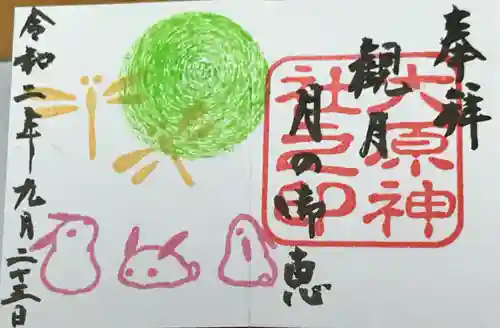 奉祥
観月
月の御恵
大原神
社之印
令和二年九月二十三日